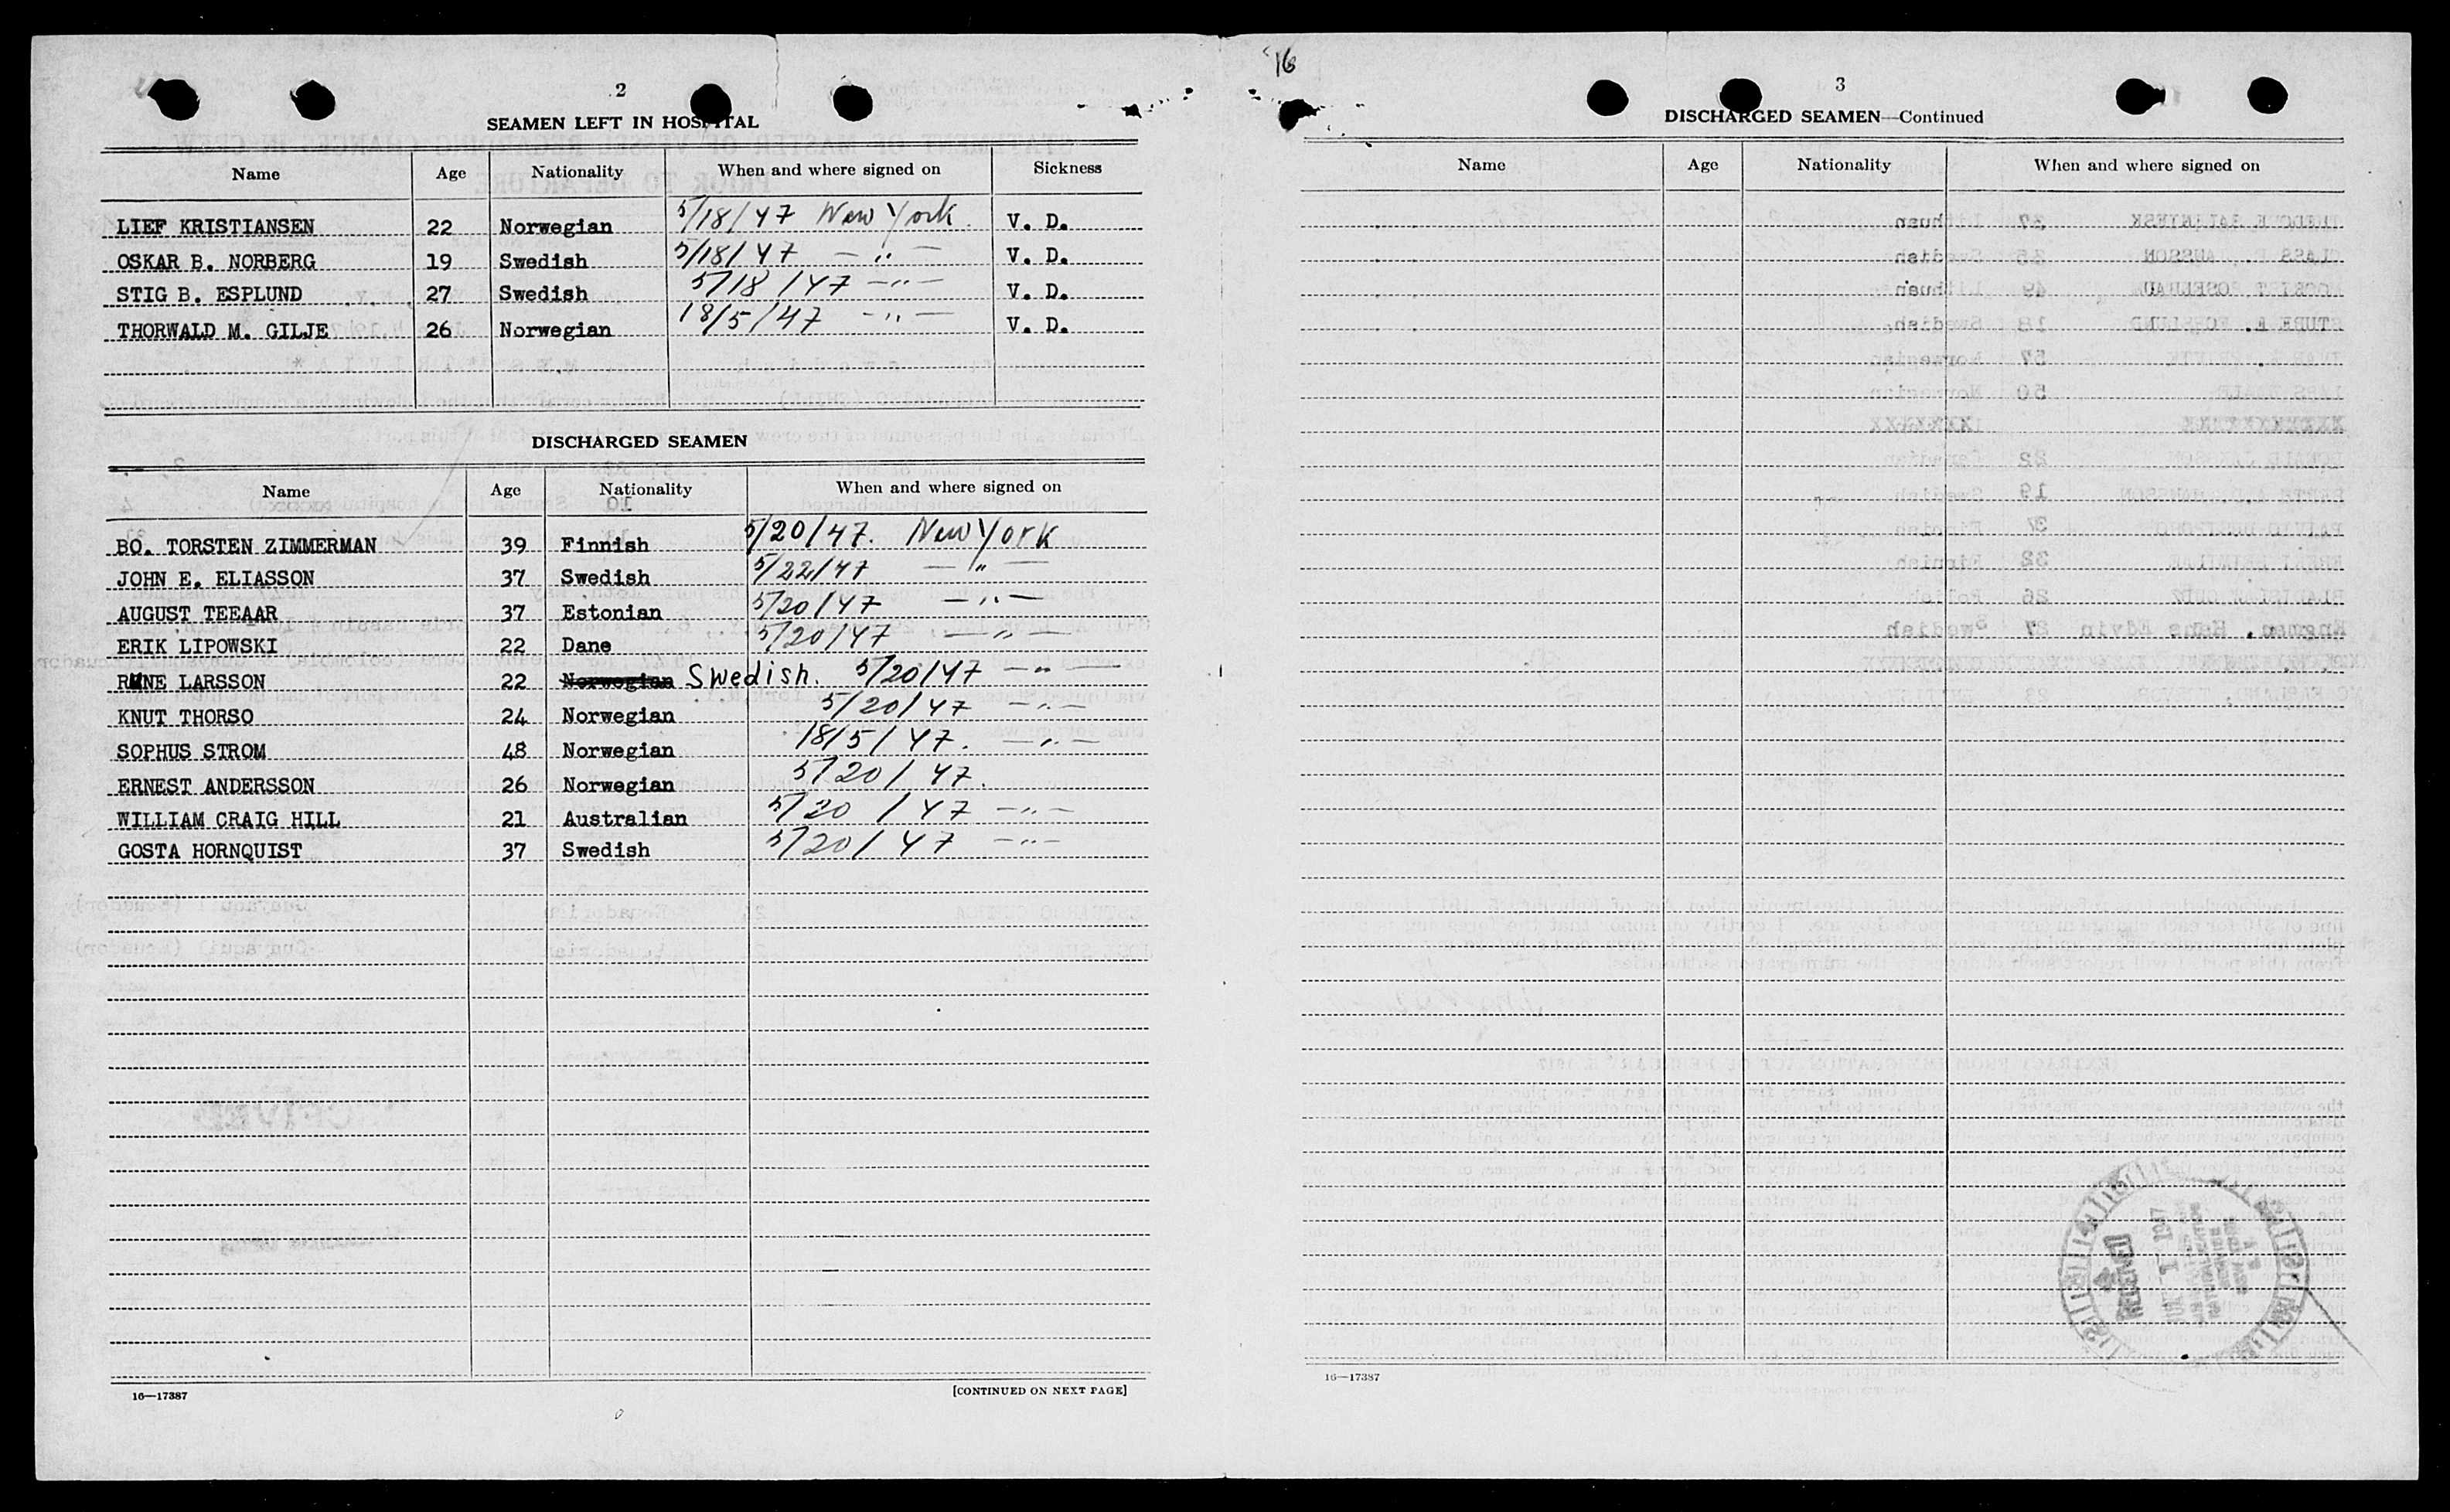 2
SEAMEN LEFT IN HOSPITAL
Name Age Nationality When and where signed on Sickness
LIEF KRISTIANSEN 22 Norwegian 5/18/47 New York. V. D.
OSKAR B. NORBERG 19 Swedish 5/18/47 — " — V. D.
STIG B. ESPLUND 27 Swedish 5/18/47 — " — V. D.
THORWALD M. GILJE 26 Norwegian 18/5/47 — " — V. D.
DISCHARGED SEAMEN
Name Age Nationality When and where signed on
BO. TORSTEN ZIMMERMAN 39 Finnish 5/20/47. New York
JOHN E. ELIASSON 37 Swedish 5/22/47 — " —
AUGUST TEEAAR 37 Estonian 5/20/47 — " —
ERIK LIPOWSKI 22 Dane 5/20/47 — " —
RUNE LARSSON 22 Norwegian Swedish. 5/20/47 — " —
KNUT THORSO 24 Norwegian 5/20/47 — " —
SOPHUS STROM 48 Norwegian 18/5/47. — " —
ERNEST ANDERSSON 26 Norwegian 5/20/47.
WILLIAM CRAIG HILL 21 Australian 5/20/47 — " —
GOSTA HORNQUIST 37 Swedish 5/20/47 — " —
16—17387 [CONTINUED ON NEXT PAGE]
16
3
DISCHARGED SEAMEN—Continued
Name Age Nationality When and where signed on
16—17387